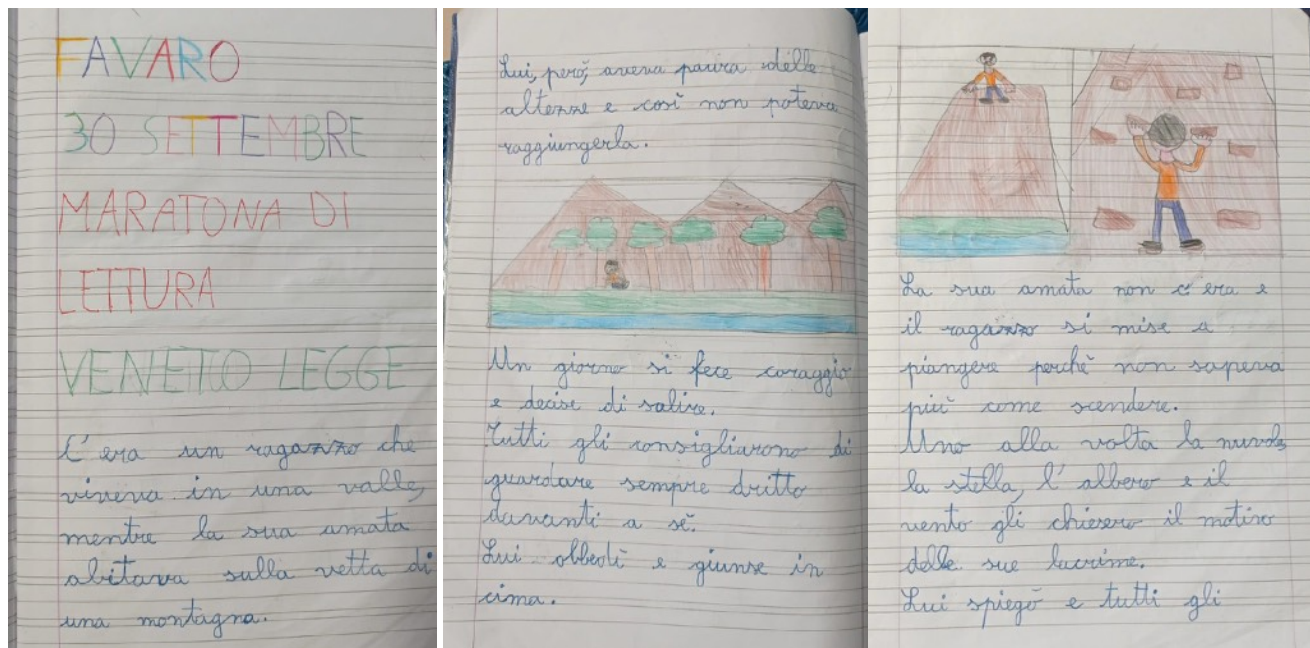 FAVARO
30 SETTEMBRE
MARATONA DI
LETTURA
VENETO LEGGE
C'era un ragazzo che
viveva in una valle,
mentre la sua amata
abitava sulla vetta di
una montagna.
Lui, però, aveva paura delle
altezze e così non poteva
raggiungerla.
Un giorno si fece coraggio
e decise di salire.
Tutti gli consigliarono di
guardare sempre dritto
davanti a sé.
Lui obbedì e giunse in
cima.
La sua amata non c'era e
il ragazzo si mise a
piangere perchè non sapeva
più come scendere.
Uno alla volta la nuvola,
la stella, l'albero e il
vento gli chiesero il motivo
delle sue lacrime.
Lui spiegò e tutti gli